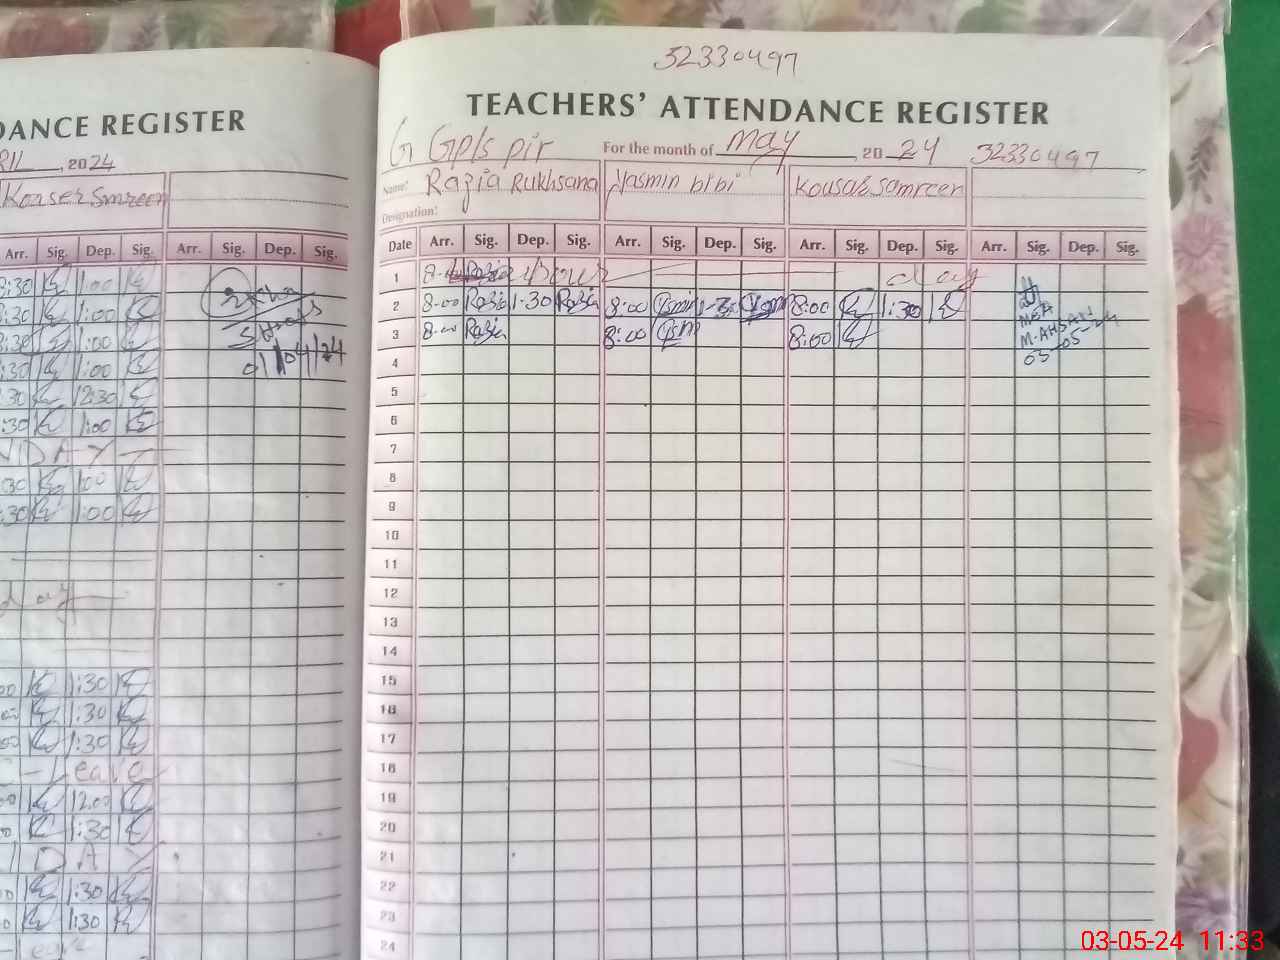 DANCE REGISTER
RIL, 2024
Kouser Smreen
Arr. Sig. Dep. Sig. Arr. Sig. Dep. Sig.
8:30 1:00
8:30 1:00
8:30 1:00
:30 1:00
:30 12:30
:30 1:00
NDAY
:30 1:00
:30 1:00
day
00 1:30
00 1:30
00 1:30
C-Leave
00 12.00
00 1:30
N D A Y
00 1:30
00 1:30
Leave
01/04/24
32330497
TEACHERS' ATTENDANCE REGISTER
G Gpls pir For the month of May, 2024 32330497
Name: Razia Rukhsana Yasmin bibi Kousar Samreen
Designation:
Date Arr. Sig. Dep. Sig. Arr. Sig. Dep. Sig. Arr. Sig. Dep. Sig. Arr. Sig. Dep. Sig.
1 8- Razia day
2 8-00 Razia 1-30 Razia 8:00 1-30 8:00 1:30
3 8-00 Razia 8:00 8:00
MEA
M-AHSAN
03-05-24
4
5
6
7
8
9
10
11
12
13
14
15
16
17
18
19
20
21
22
23
24
03-05-24 11:33